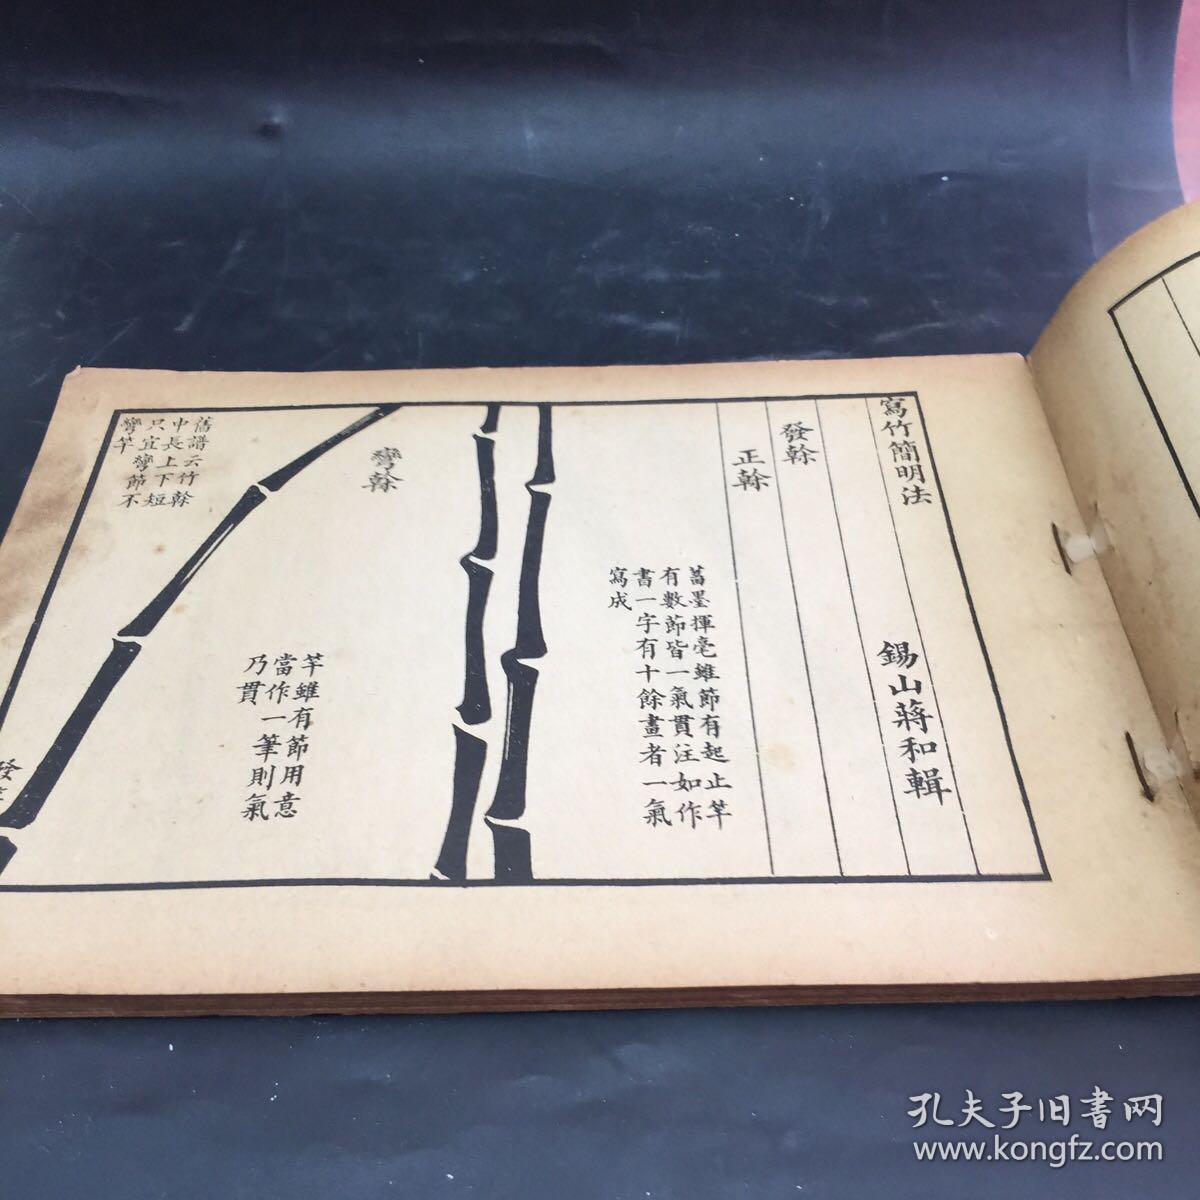 寫竹簡明法
錫山蔣和輯
發榦
正榦
蓄墨揮毫雖節有起止竿
有數節皆一氣貫注如作
書一字有十餘畫者一氣
寫成
彎榦
竿雖有節用意
當作一筆則氣
乃貫
舊譜云竹榦
中長上下短
只宜彎節不
彎竿
發
孔夫子旧書网
www.kongfz.com